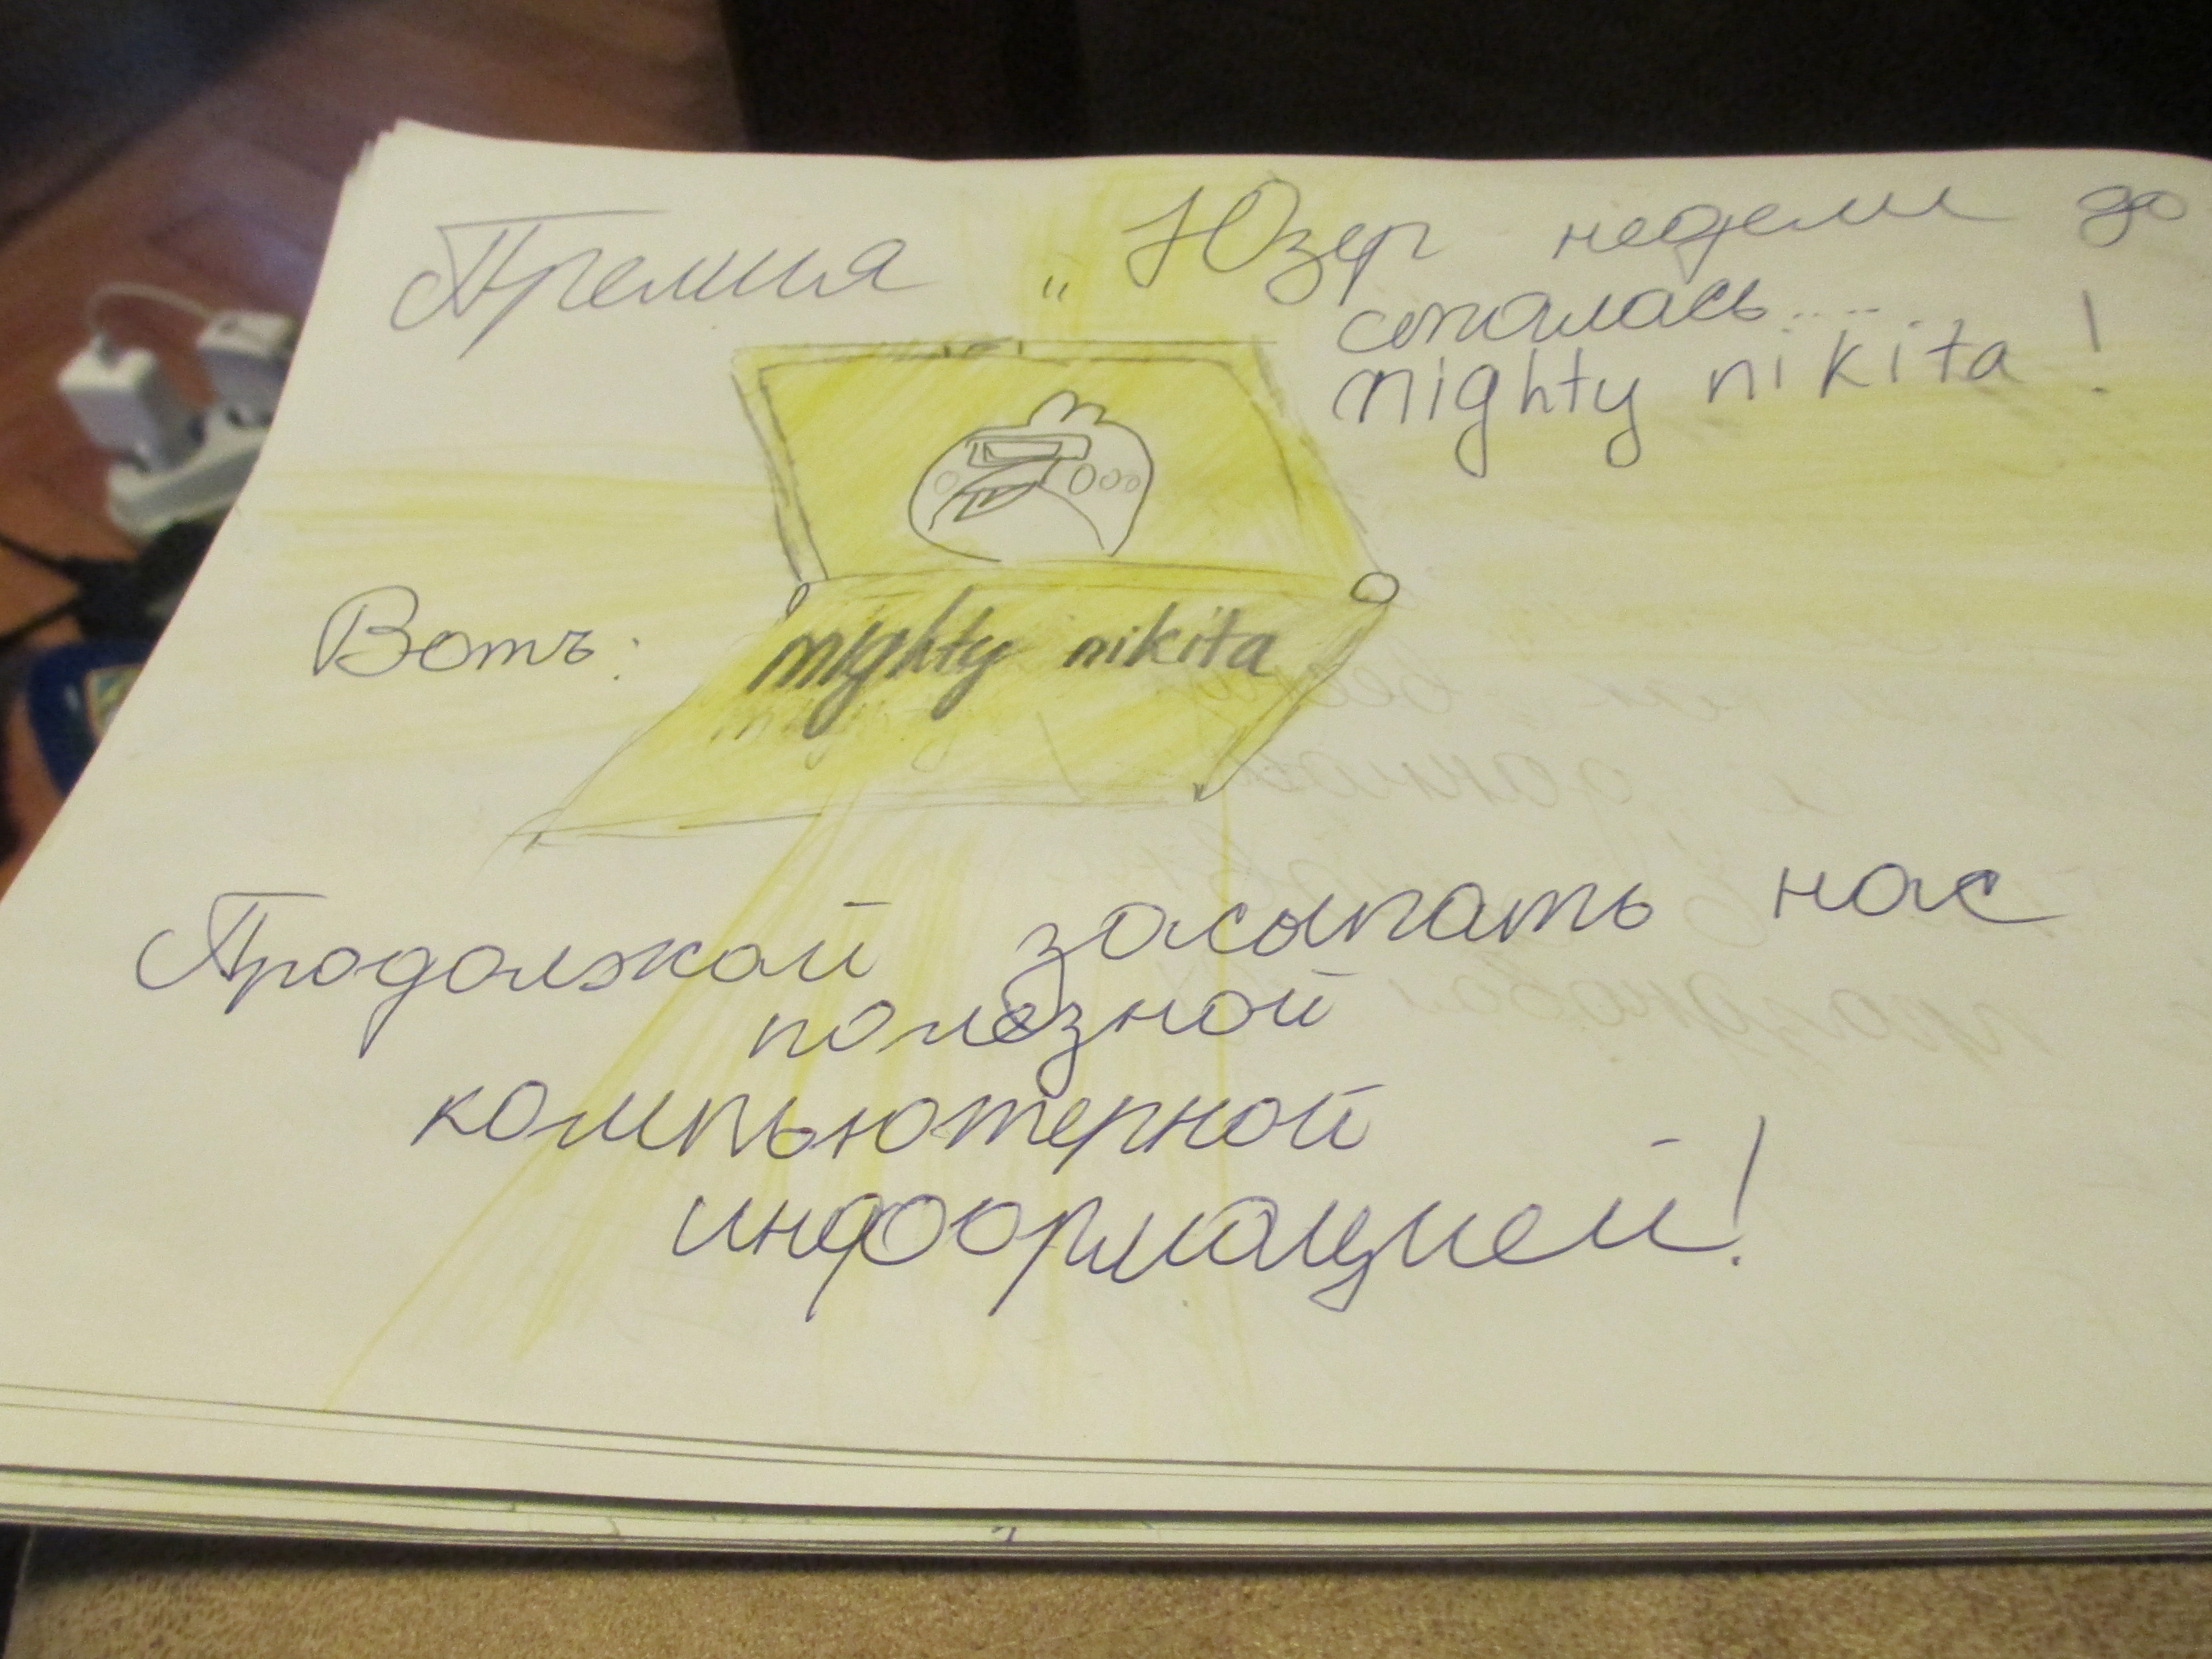 Премия „ Юзер недели до
сталась.....
mighty nikita !
Вотъ:
mighty nikita
Продолжай засыпать нас
полезной
компьютерной
информацией!